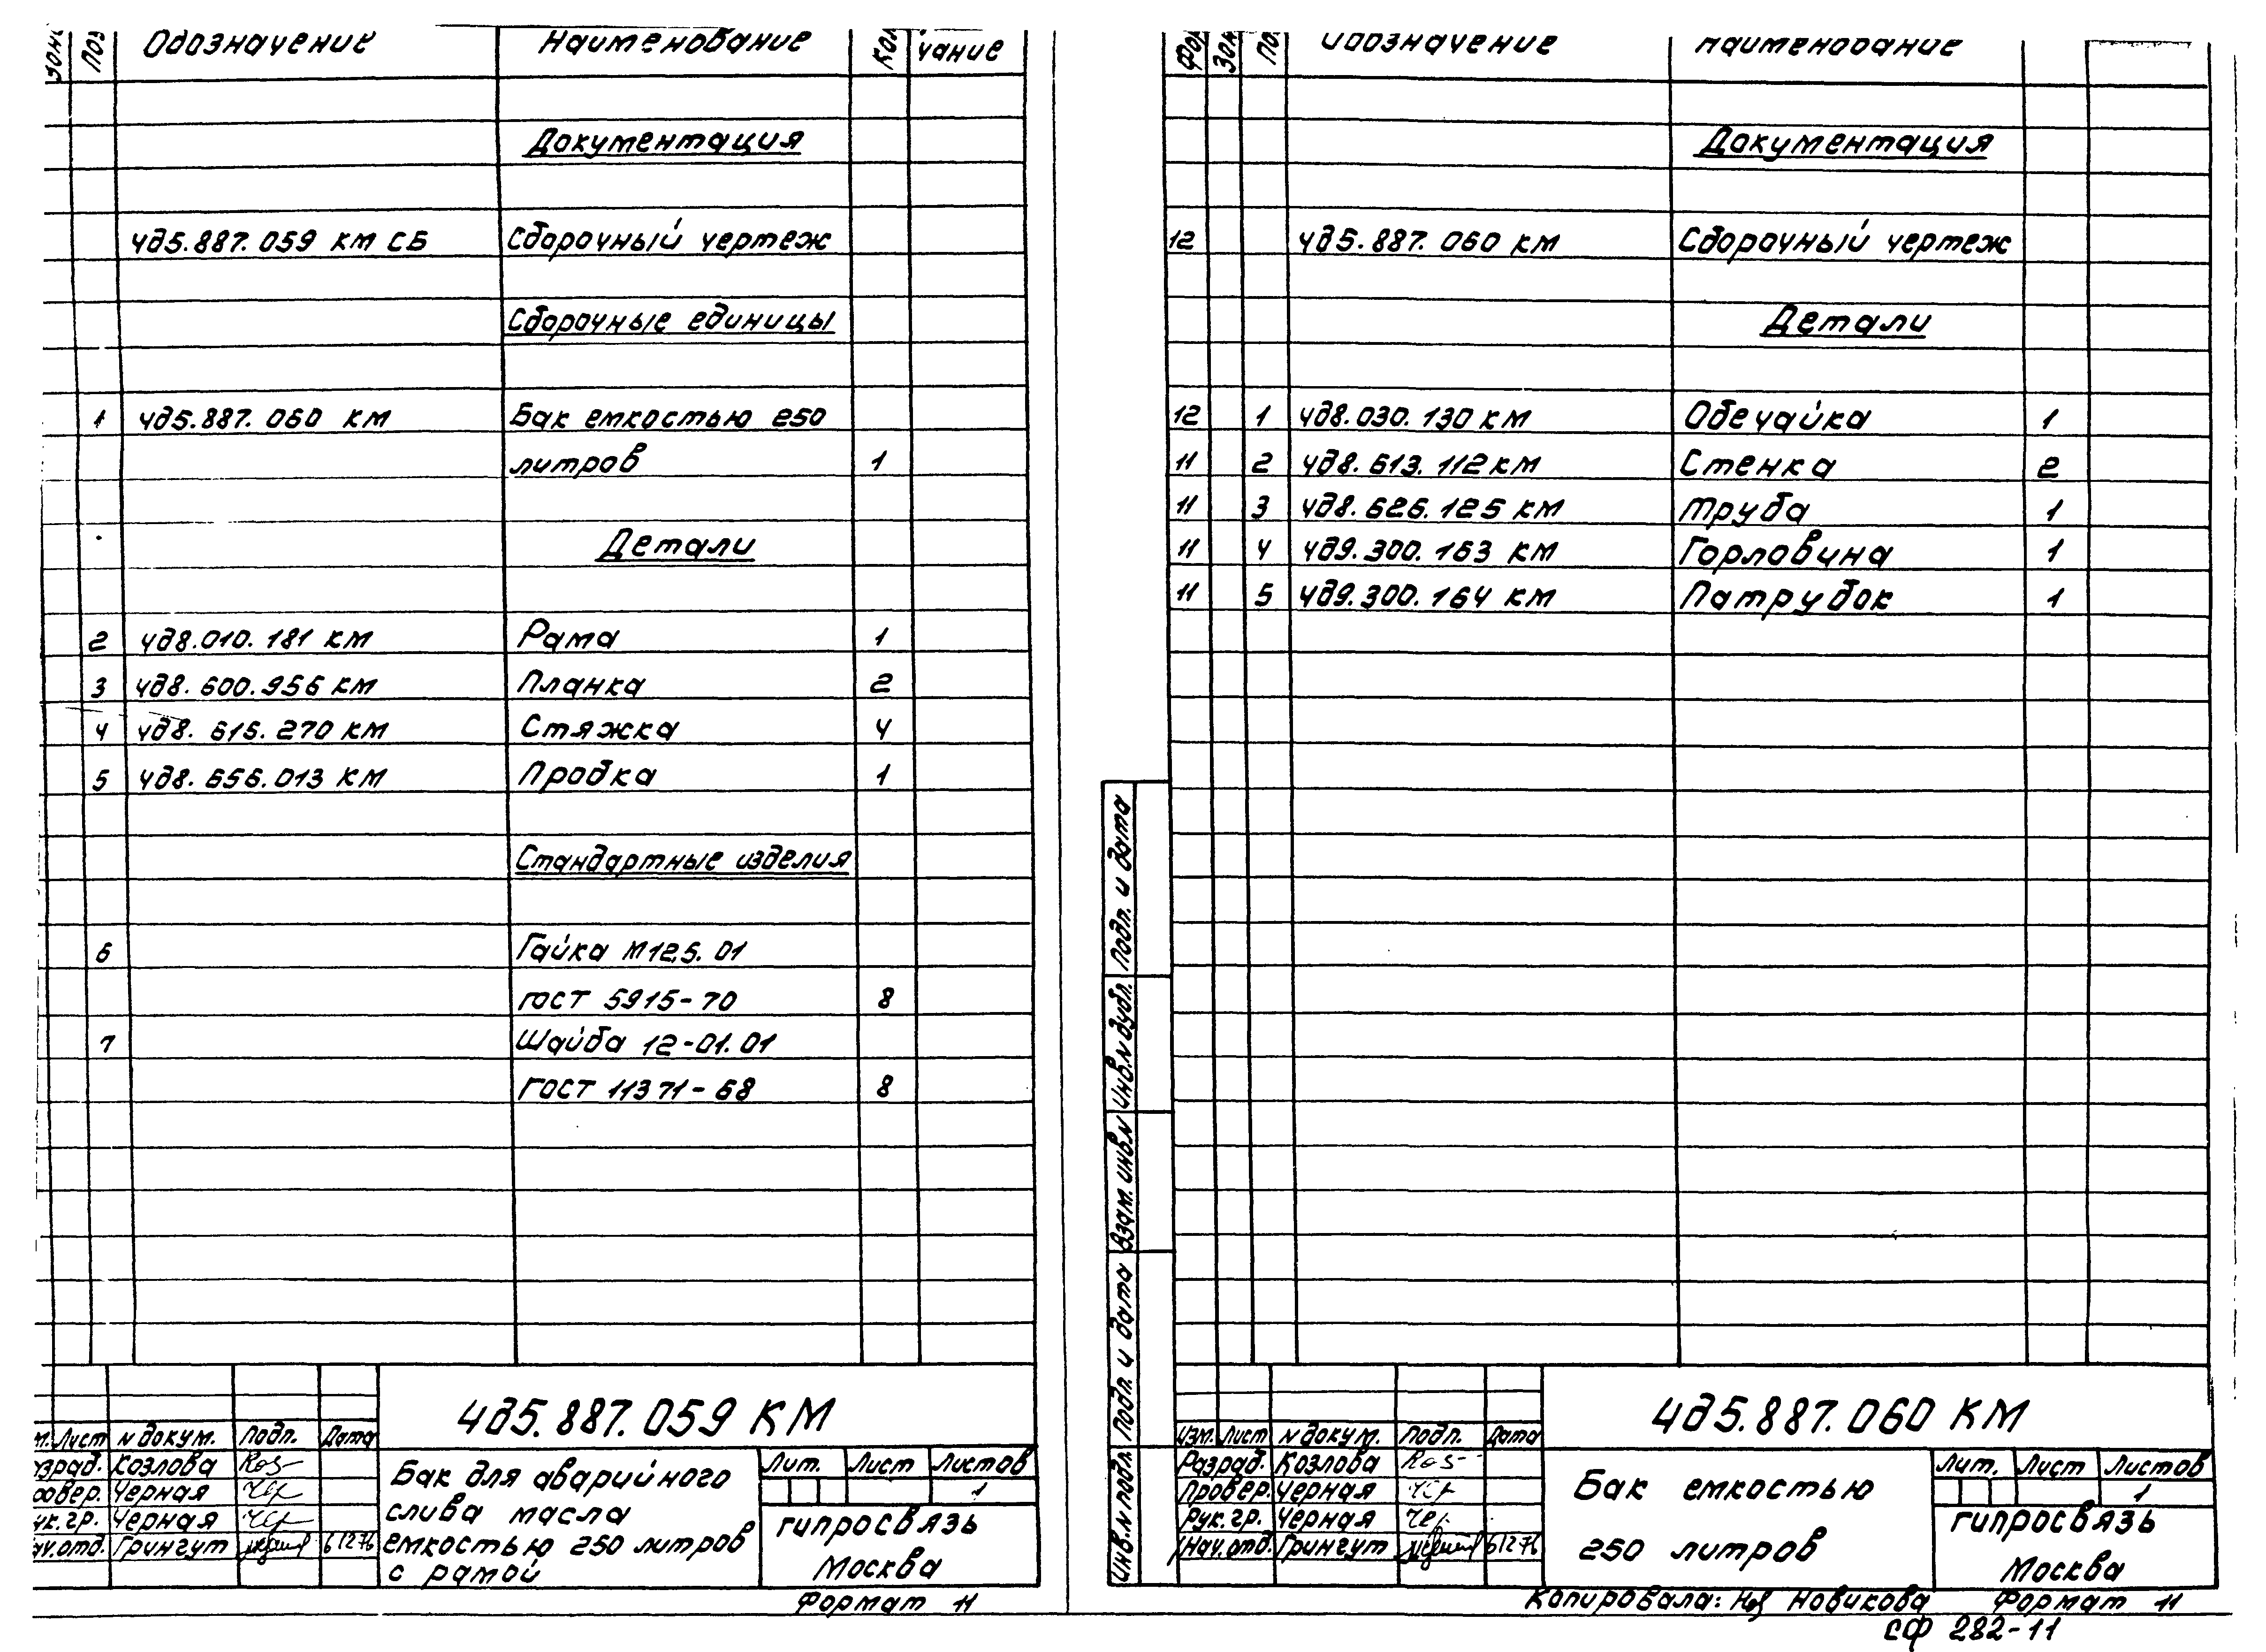 Поз Обозначение Наименование Кол чание
Документация
чд5.887.059 КМ СБ Сборочный чертеж
Сборочные единицы
1 чд5.887.060 КМ Бак емкостью 250
литров 1
Детали
2 чд8.010.181 КМ Рама 1
3 чд8.600.956 КМ Планка 2
4 чд8.615.270 КМ Стяжка 4
5 чд8.656.013 КМ Пробка 1
Стандартные изделия
6 Гайка М12.5.01
ГОСТ 5915-70 8
7 Шайба 12-01.01
ГОСТ 11371-68 8
чд5.887.059 КМ
Лист N докум. Подп. Дата
Козлова
Черная
Черная
Грингут 61276
Бак для аварийного
слива масла
емкостью 250 литров
с рамой
Лит. Лист Листов
1
гипросвязь
Москва
Формат 11
Обозначение Наименование
Документация
12 чд5.887.060 КМ Сборочный чертеж
Детали
12 1 чд8.030.130 КМ Обечайка 1
11 2 чд8.613.112 КМ Стенка 2
11 3 чд8.626.125 КМ Труба 1
11 4 чд9.300.163 КМ Горловина 1
11 5 чд9.300.164 КМ Патрубок 1
Подп. и дата
Инв.N дубл.
Взам. инв.N
Подп. и дата
Инв.N подл.
чд5.887.060 КМ
Изм. Лист N докум. Подп. Дата
Разраб. Козлова
Провер. Черная
Рук. гр. Черная
Нач. отд. Грингут 61276
Бак емкостью
250 литров
Лит. Лист Листов
1
гипросвязь
Москва
Копировала: Новикова Формат 11
СФ 282-11